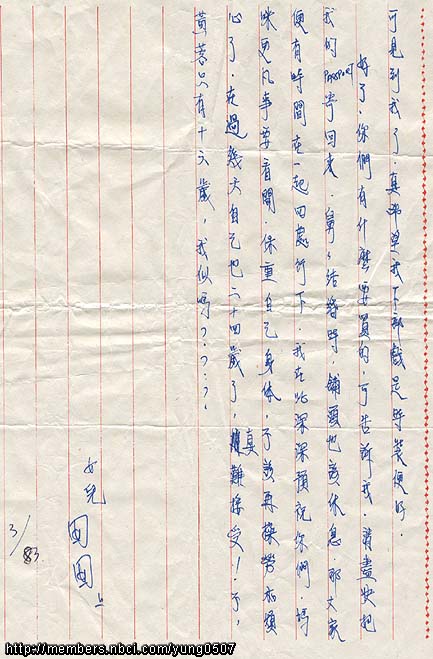 可見到我了．真希望我下部戲是時裝便好．
好了．你們有什麼要買的，可告訴我．請盡快把
我的PASSPORT寄回來．舅舅結婚時，舖頭也該休息那大家
便有時間在一起四處行下．我在此深深預祝你們．媽
咪更凡事要看開，保重自己身体，不該再操勞
心了．在過幾天自己也二十四歲了，真難接受！不，
黃蓉只有十六歲，我似嗎？？？
女兒
囡囡上
3/83.
http://members.nbci.com/yung0507